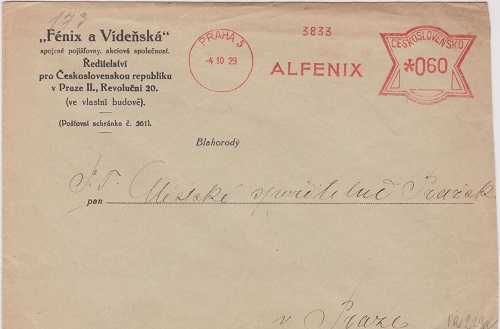 173
„Fénix a Vídeňská“
spojené pojišťovny, akciová společnost.
Ředitelství
pro Československou republiku
v Praze II., Revoluční 20.
(ve vlastní budově).
(Poštovní schránka č. 561).
PRAHA 5
-4 10 29
3833
ALFENIX
ČESKOSLOVENSKO
*060
Blahorodý
P.T.
pan Městské spořitelně Pražské
v Praze